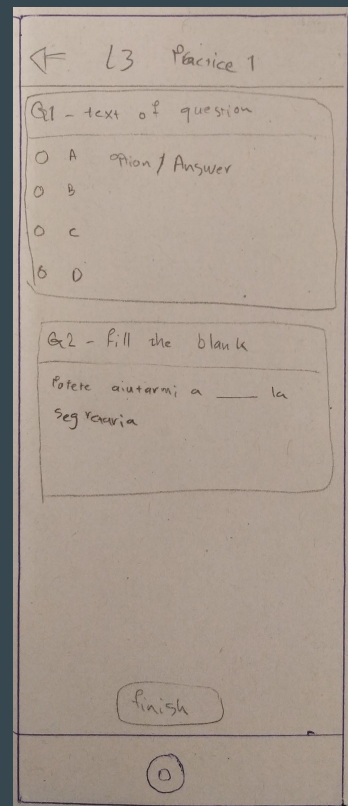 L3 Practice 1
Q1 - text of question
A option / Answer
B
C
D
Q2 - Fill the blank
Potete aiutarmi a ___ la
finish